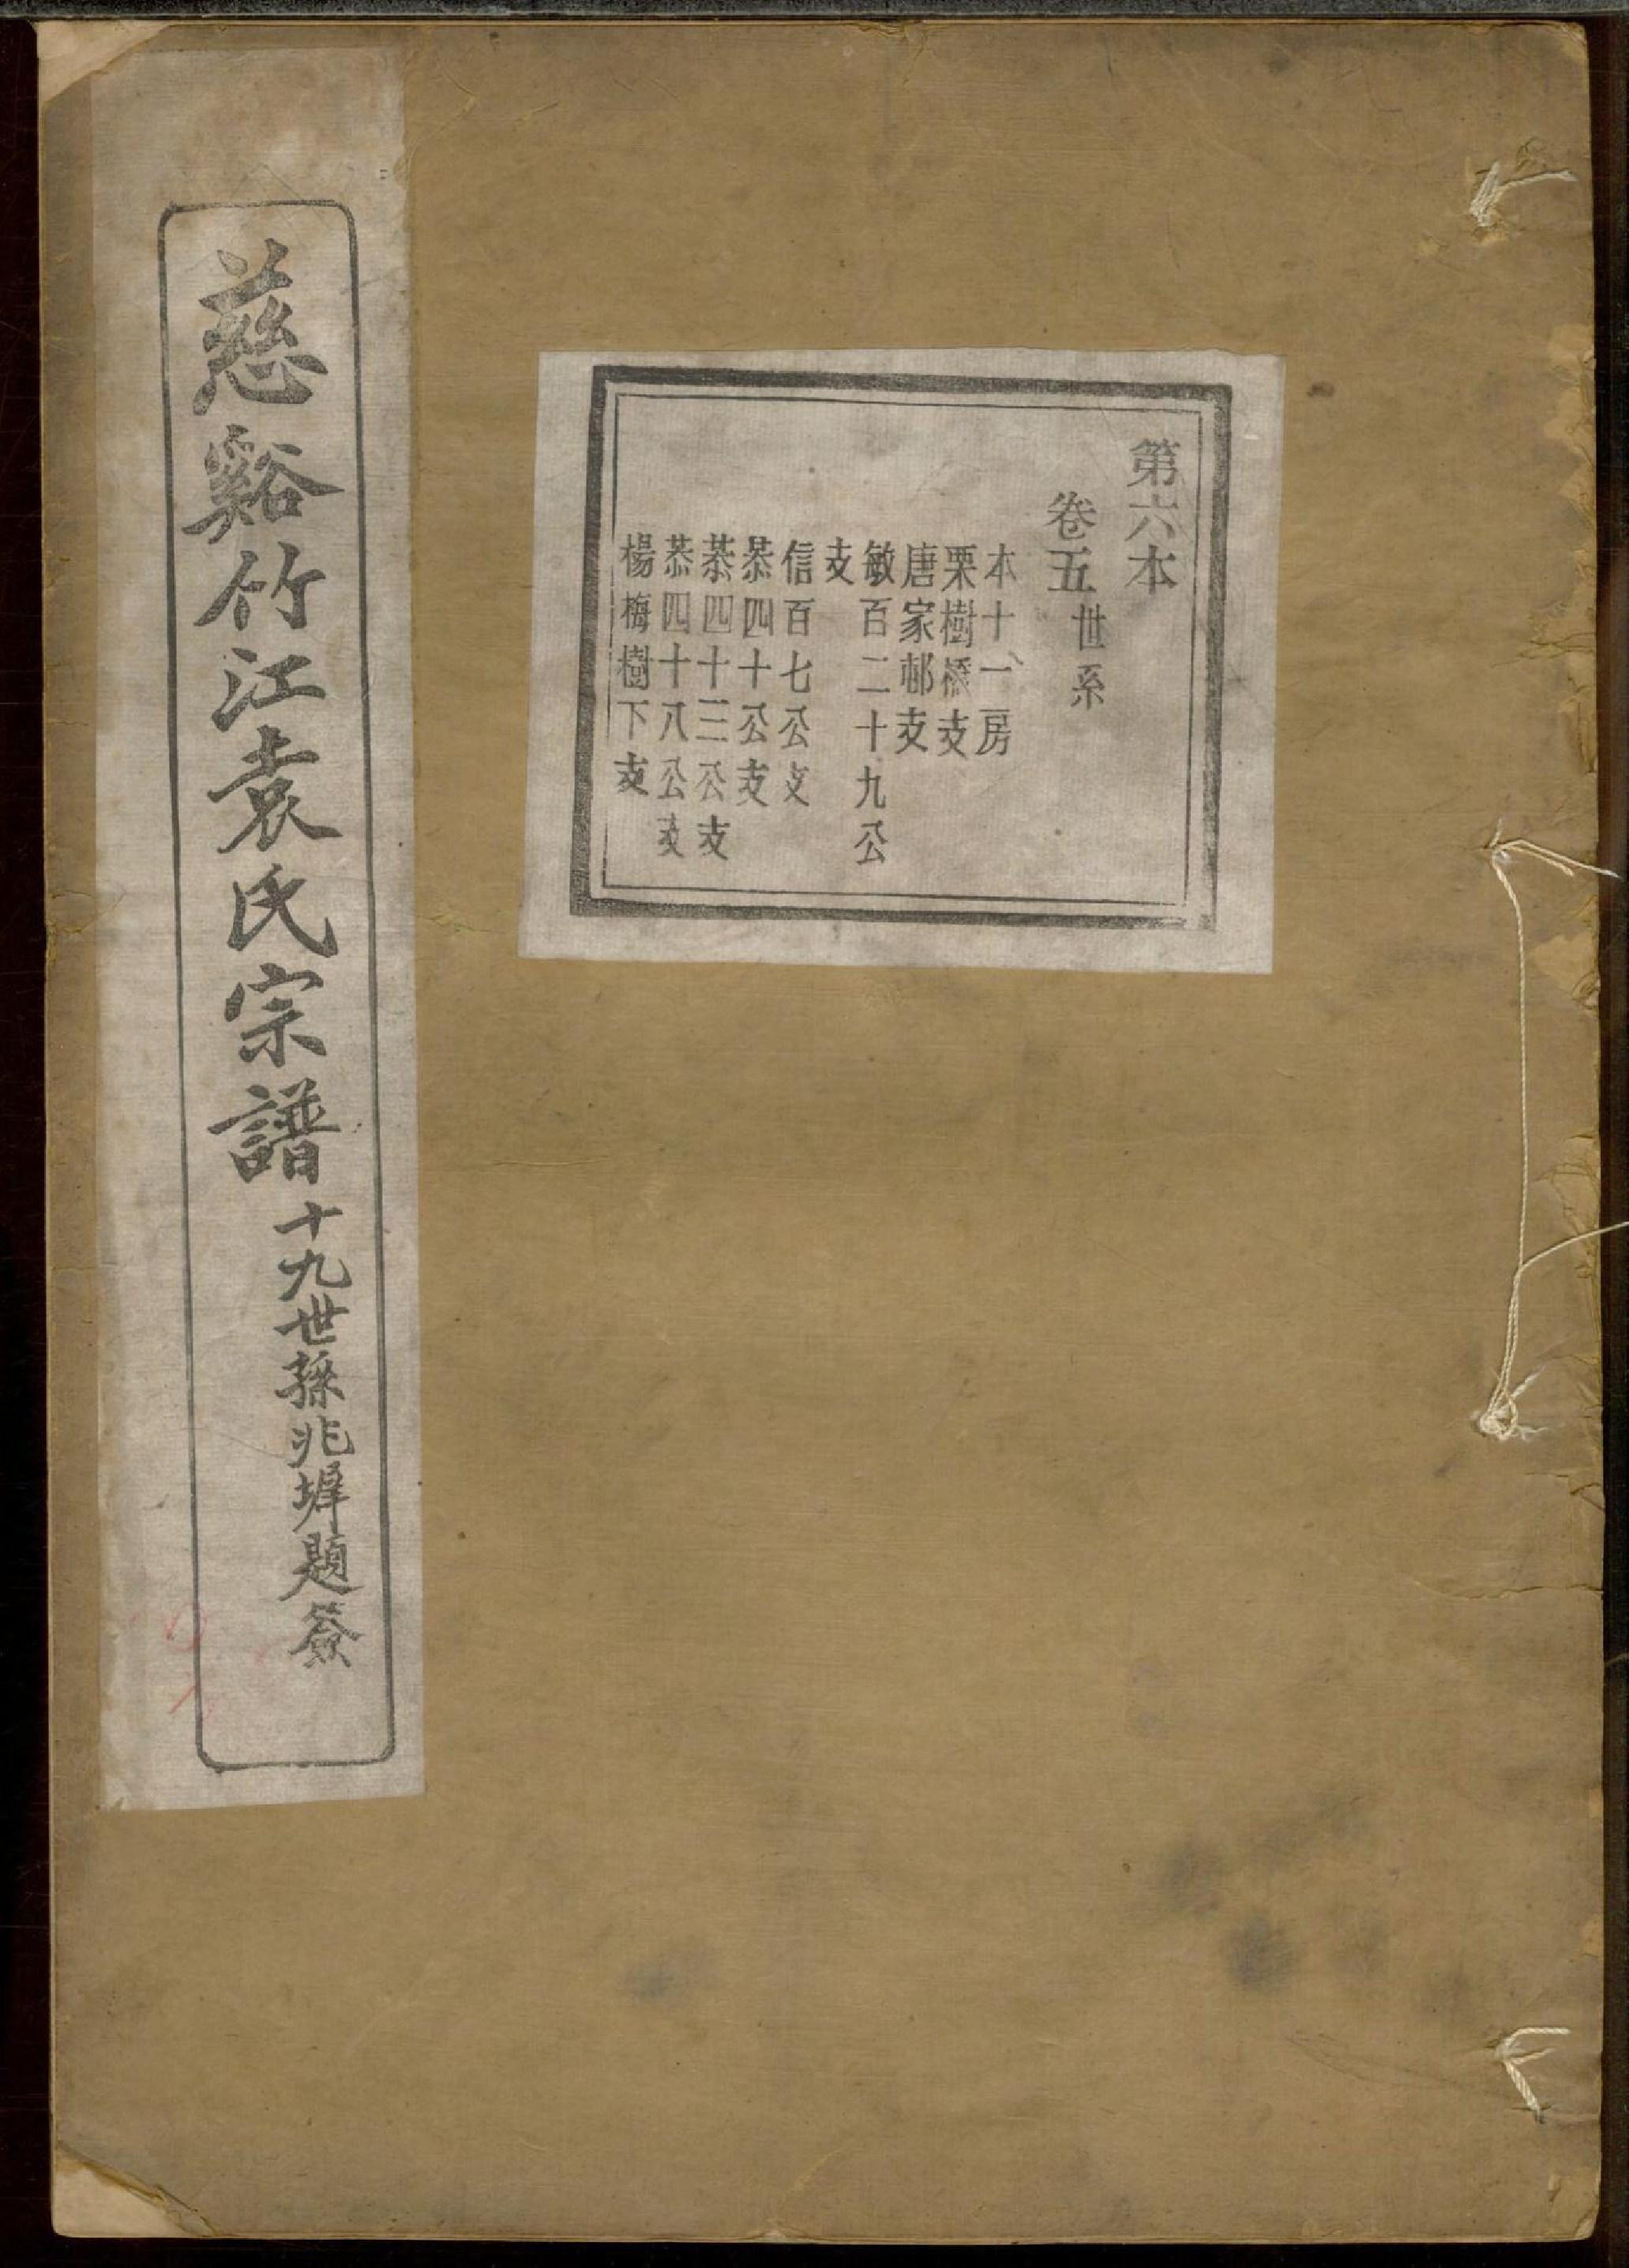 第六本
卷五世系
本十一房
栗樹橋支
唐家邨支
敏百二十九公
支
信百七公支
恭四十公支
恭四十三公支
恭四十八公支
楊梅樹下支
慈谿竹江袁氏宗譜
十九世孫兆墀題簽